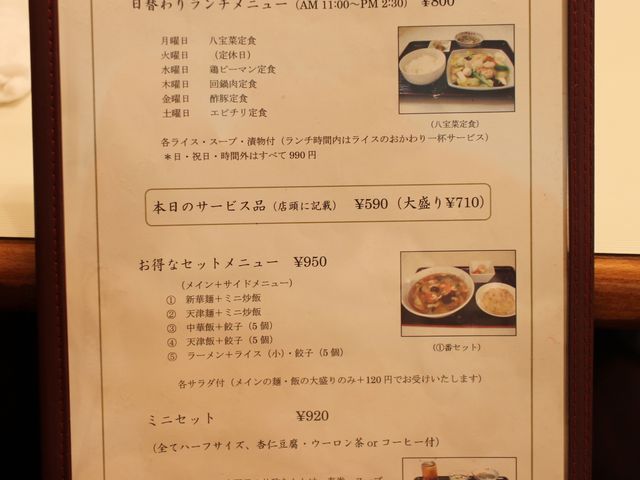 日替わりランチメニュー（AM 11:00～PM 2:30） ¥800
月曜日 八宝菜定食
火曜日 （定休日）
水曜日 鶏ピーマン定食
木曜日 回鍋肉定食
金曜日 酢豚定食
土曜日 エビチリ定食
（八宝菜定食）
各ライス・スープ・漬物付（ランチ時間内はライスのおかわり一杯サービス）
＊日・祝日・時間外はすべて 990 円
本日のサービス品（店頭に記載） ¥590（大盛り¥710）
お得なセットメニュー ¥950
（メイン＋サイドメニュー）
① 新華麺＋ミニ炒飯
② 天津麺＋ミニ炒飯
③ 中華飯＋餃子（5 個）
④ 天津飯＋餃子（5 個）
⑤ ラーメン＋ライス（小）・餃子（5 個）
（①番セット）
各サラダ付（メインの麺・飯の大盛りのみ＋120 円でお受けいたします）
ミニセット ¥920
（全てハーフサイズ、杏仁豆腐・ウーロン茶 or コーヒー付）